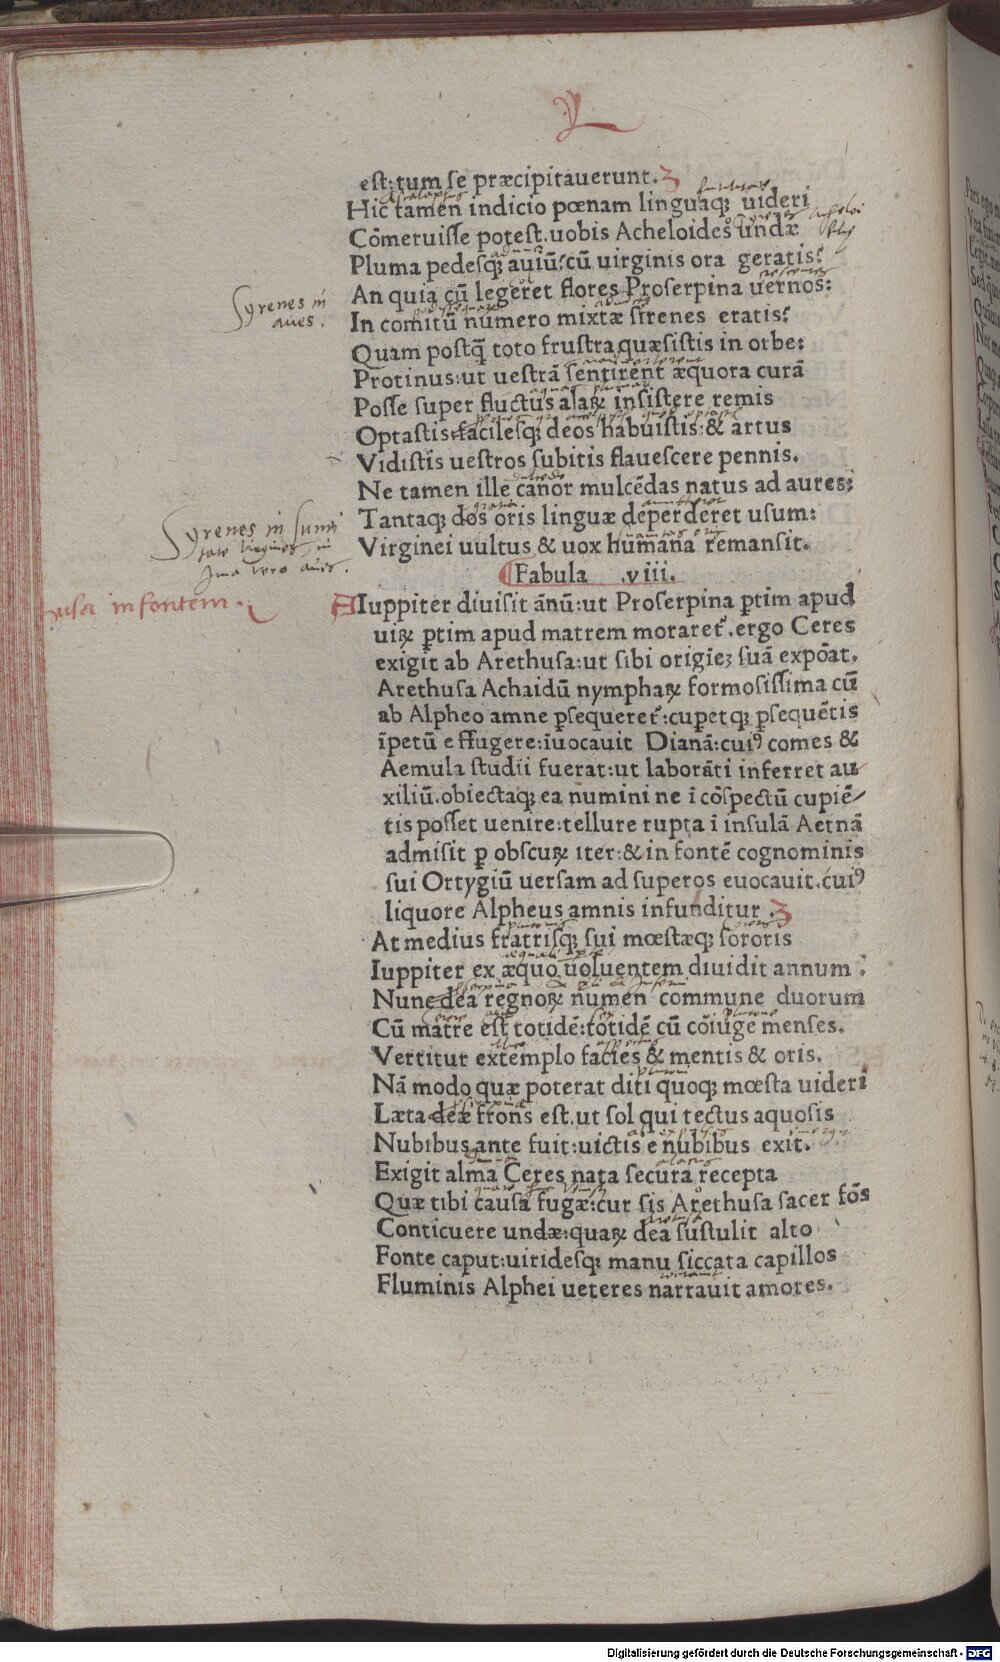 V
est: tum se præcipitauerunt.
Hic tamen indicio pœnam linguaqꝫ uideri
Cōmeruisse potest. uobis Acheloides undæ
Pluma pedesqꝫ auiū: cū uirginis ora geratis?
An quia cū legeret flores Proserpina uernos:
Syrenes in
aues.
In comitū numero mixtæ sirenes eratis?
Quam postq̄ toto frustra quæsistis in orbe:
Protinus: ut uestrā sentirent æquora curā
Posse super fluctus alaꝝ insistere remis
Optastis: facilesqꝫ deos habuistis: & artus
Vidistis uestros subitis flauescere pennis.
Ne tamen ille canor mulcēdas natus ad aures:
Tantaqꝫ dos oris linguæ deperderet usum:
Virginei uultus & uox humana remansit.
Syrenes in sum̄i
tate virgines in
ima vero aues.
Fabula .viii.
usa in fontem.
Iuppiter diuisit ānū: ut Proserpina ꝑtim apud
uiꝝ ꝑtim apud matrem moraret᷑. ergo Ceres
exigit ab Arethusa: ut sibi origiēꝫ suā expōat.
Arethusa Achaidū nymphaꝝ formosissima cū
ab Alpheo amne ꝑsequeret᷑: cuꝑetqꝫ ꝑsequētis
īpetū effugere: īuocauit Dianā: cuiꝰ comes &
Aemula studii fuerat: ut laborāti inferret au
xiliū. obiectaqꝫ ea numini ne ī cōspectū cupiē/
tis posset uenire: tellure rupta ī insulā Aetnā
admisit ꝑ obscuꝝ iter: & in fontē cognominis
sui Ortygiū uersam ad superos euocauit. cuiꝰ
liquore Alpheus amnis infunditur.
At medius fratrisqꝫ sui mœstæqꝫ sororis
Iuppiter ex æquo uoluentem diuidit annum:
Nunc dea regnoꝝ numen commune duorum
Cū matre est totidē: totidē cū cōiuge menses.
Vertitur extemplo facies & mentis & oris.
Nā modo quæ poterat diti quoqꝫ mœsta uideri
Læta deæ frons est. ut sol qui tectus aquosis
Nubibus ante fuit: uictis e nubibus exit.
Exigit alma Ceres nata secura recepta
Quæ tibi causa fugæ: cur sis Arethusa sacer fōs
Conticuere undæ: quaꝝ dea sustulit alto
Fonte caput: uiridesqꝫ manu siccata capillos
Fluminis Alphei ueteres narrauit amores.
Digitalisierung gefördert durch die Deutsche Forschungsgemeinschaft - DFG